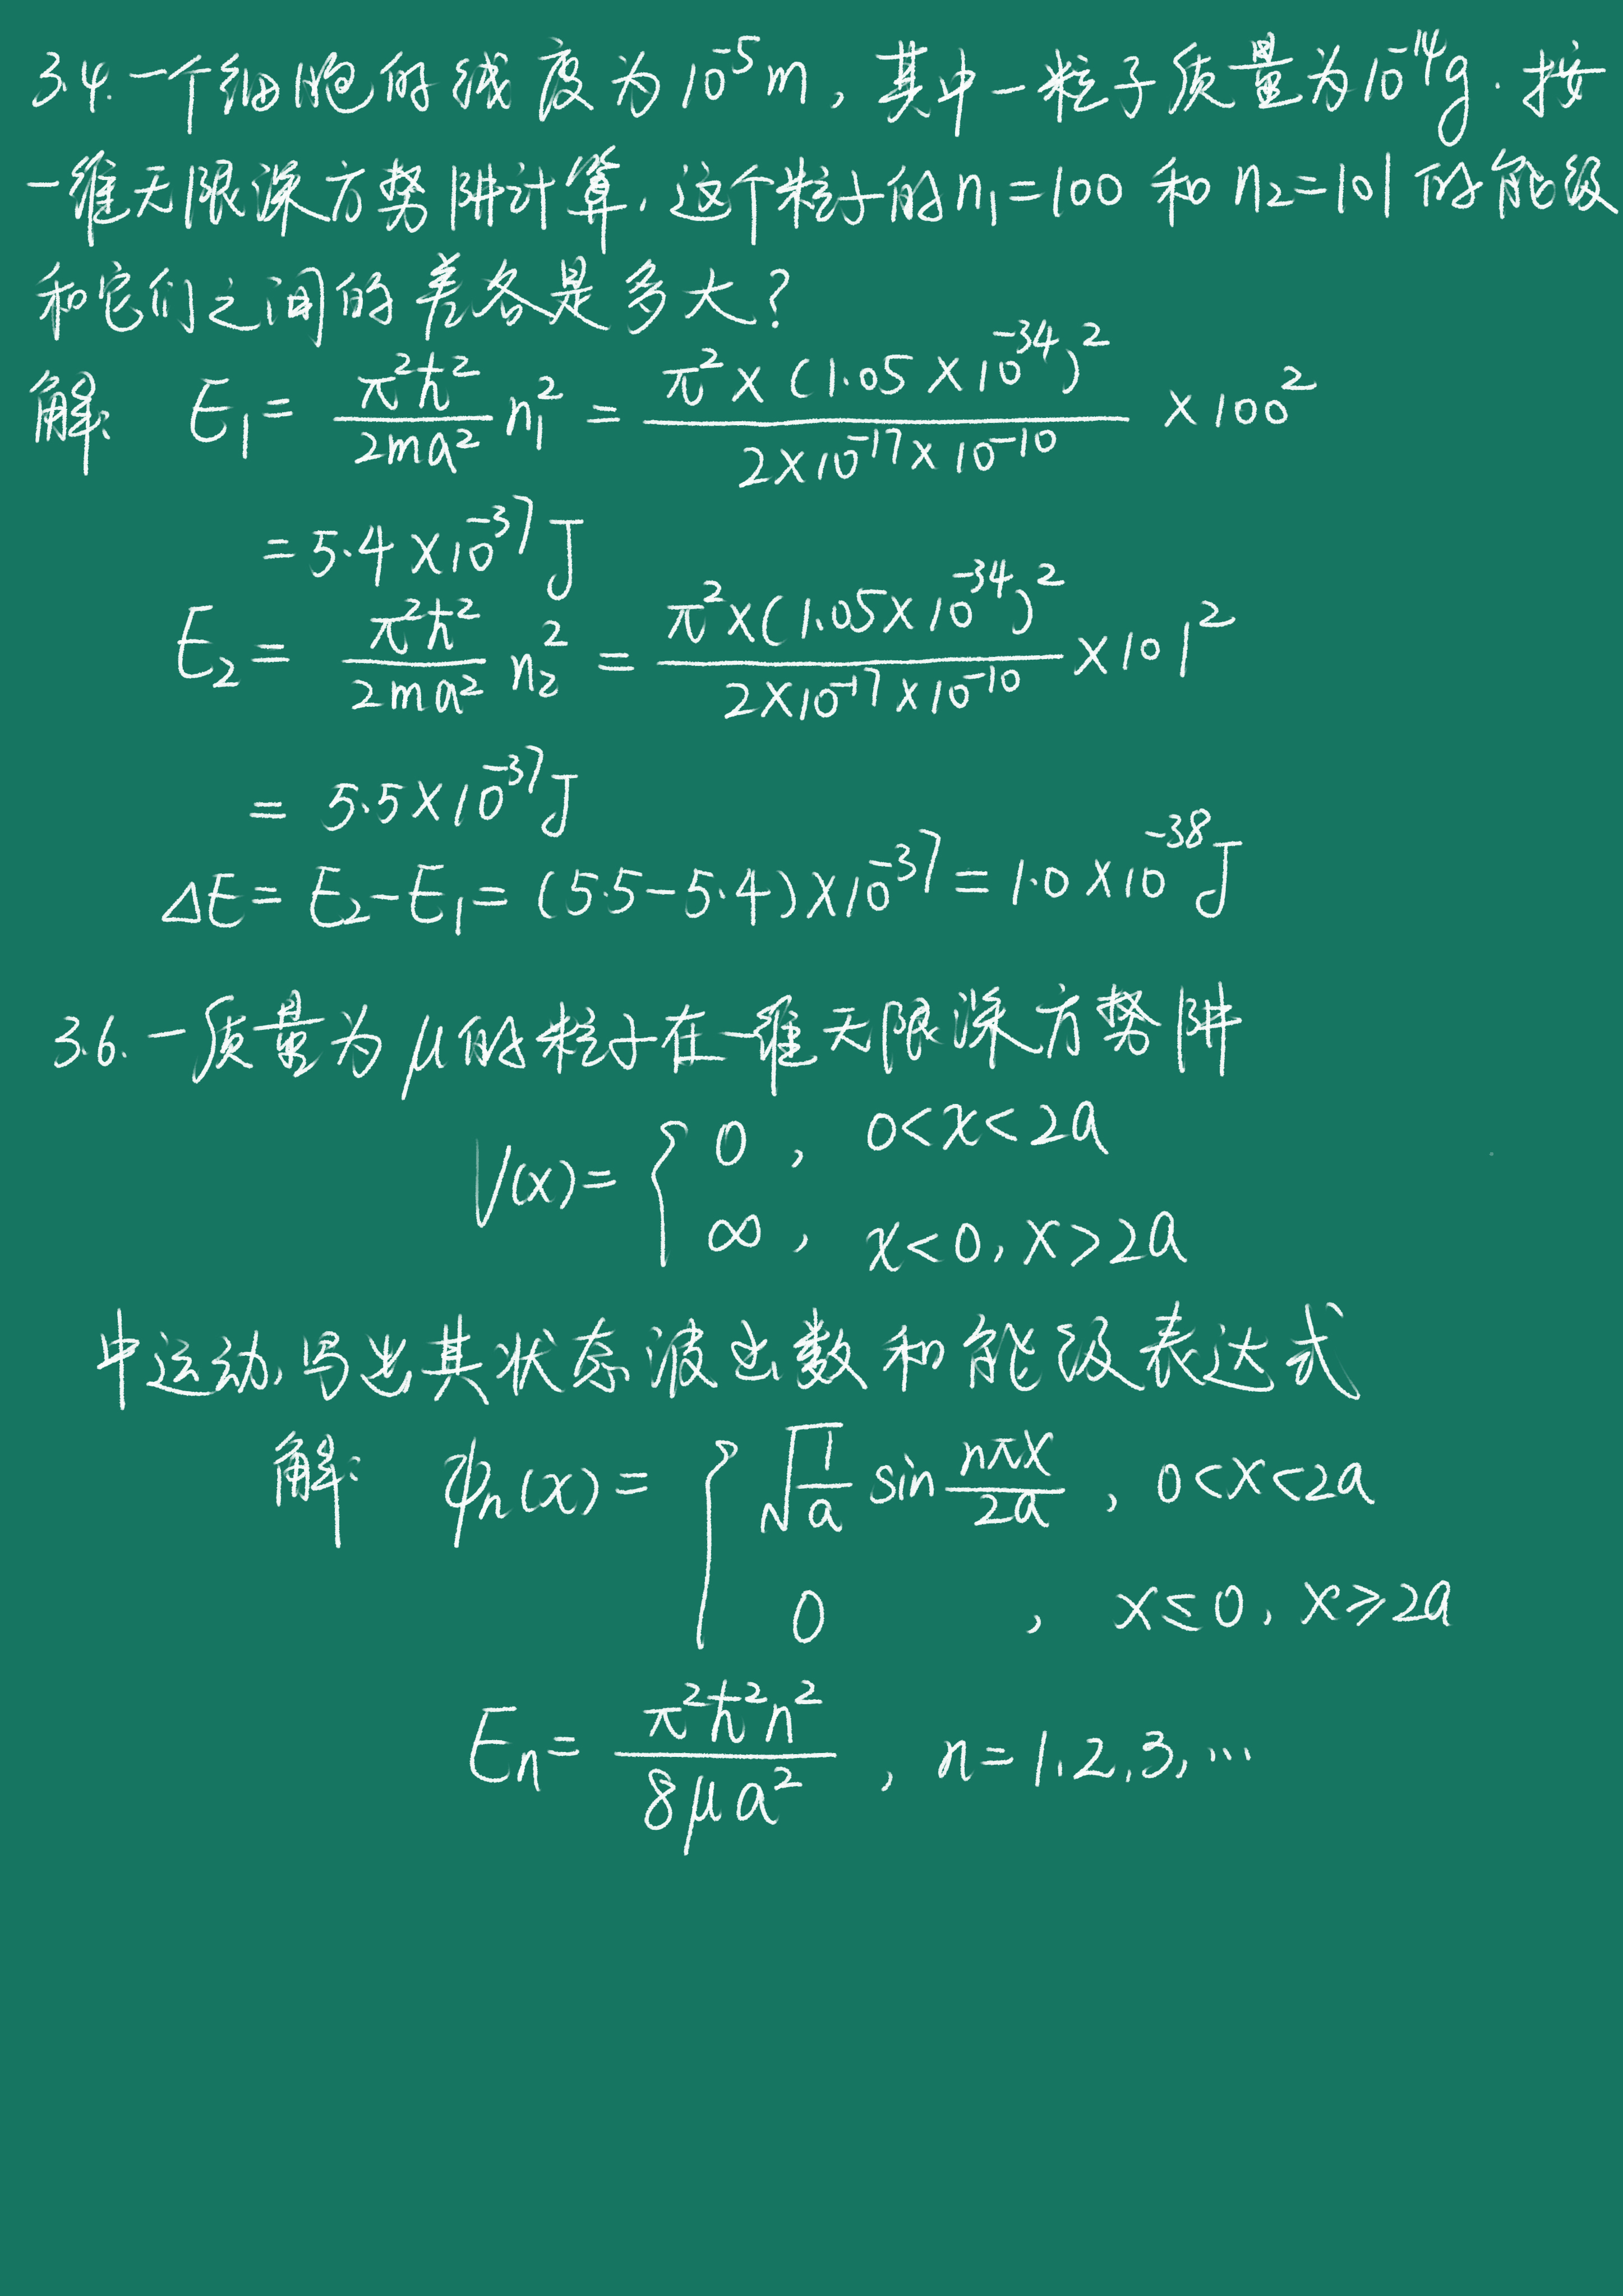 3.4. 一个细胞的线度为10⁻⁵m, 其中一粒子质量为10⁻¹⁴g. 按
一维无限深方势阱计算, 这个粒子的n₁=100 和 n₂=101 的能级
和它们之间的差各是多大?
解: E₁ = π²ħ²/2ma² n₁² = π²×(1.05×10⁻³⁴)²/2×10⁻¹⁷×10⁻¹⁰ ×100²
= 5.4×10⁻³⁷J
E₂ = π²ħ²/2ma² n₂² = π²×(1.05×10⁻³⁴)²/2×10⁻¹⁷×10⁻¹⁰ ×101²
= 5.5×10⁻³⁷J
ΔE = E₂-E₁ = (5.5-5.4)×10⁻³⁷ = 1.0×10⁻³⁸J
3.6. 一质量为μ的粒子在一维无限深方势阱
V(x) = { 0, 0<x<2a
∞, x<0, x>2a
中运动, 写出其状态波函数和能级表达式
解: ψₙ(x) = { √(1/a) sin nπx/2a, 0<x<2a
0, x≤0, x≥2a
Eₙ = π²ħ²n²/8μa², n=1,2,3,…